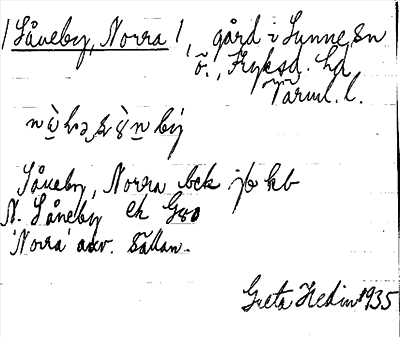 /Såneby, Norra/, gård i Sunne sn
ö., Fryksd. hd
Värml. l.
Såneby, Norra bek jb kb
N. Såneby ek G
'Norra' anv. sällan.
Greta Hedin 1935